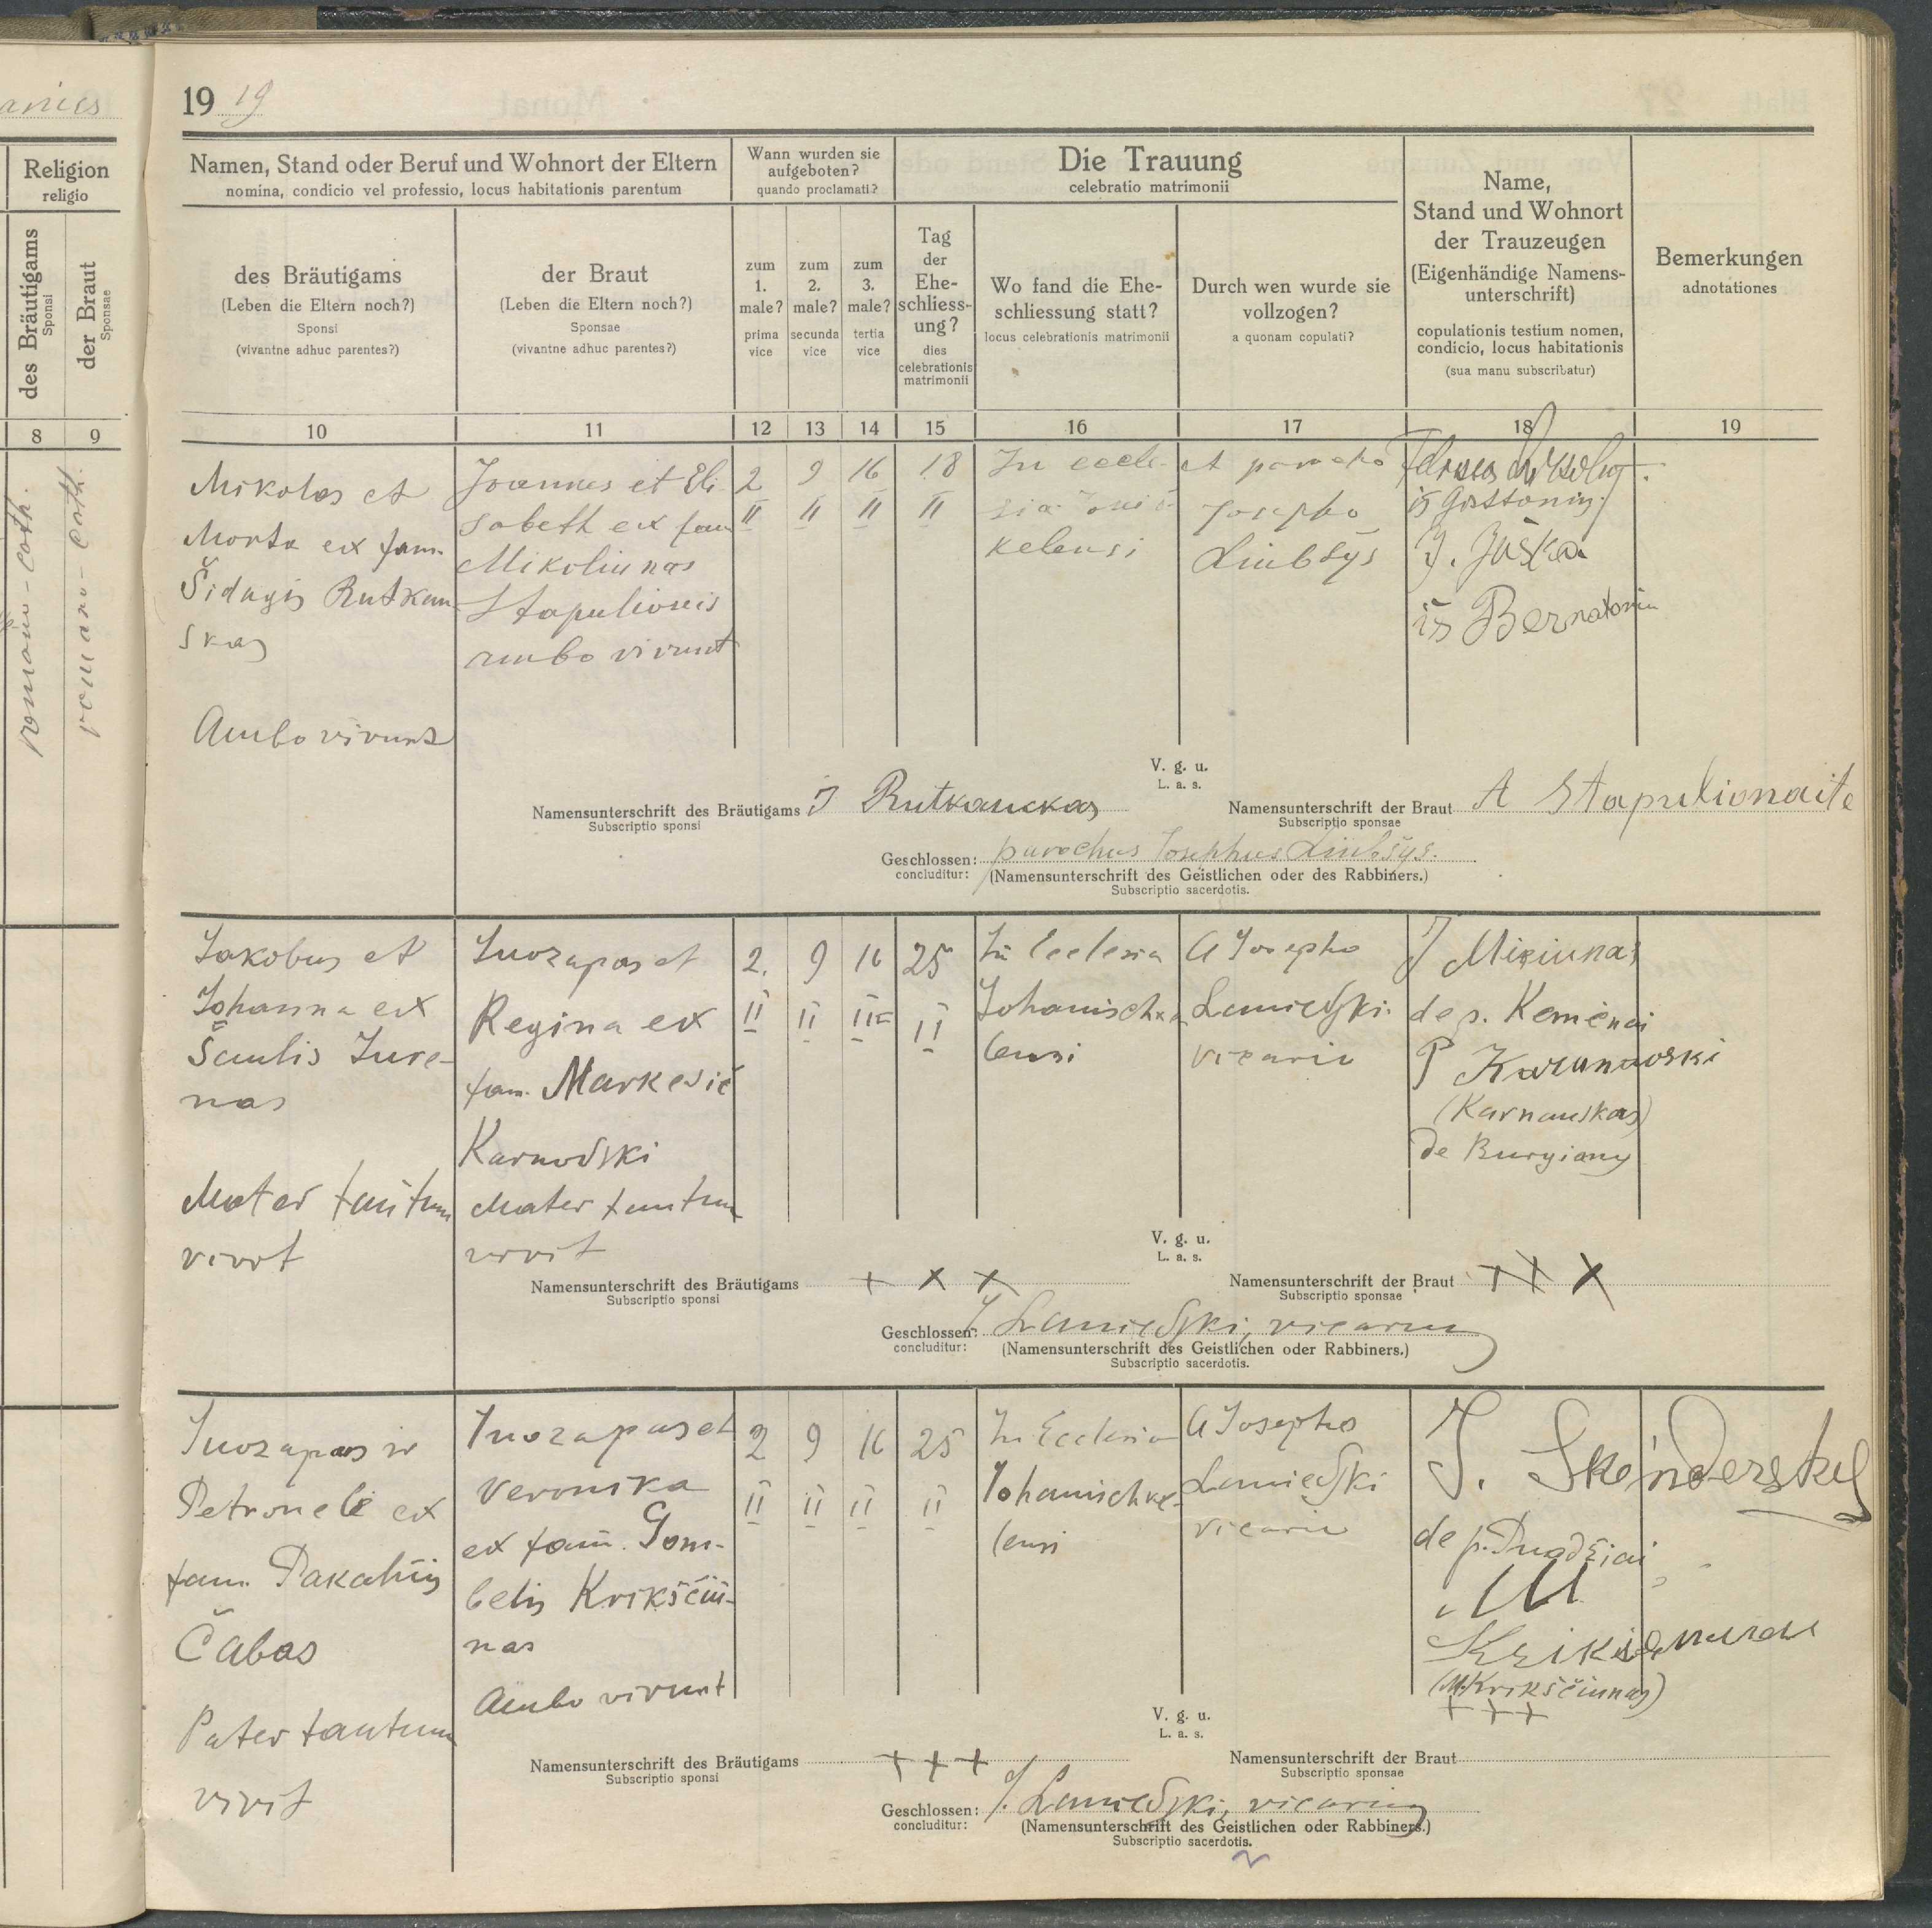 19 19
Religion
religio
des Bräutigams
Sponsi
der Braut
Sponsae
8
9
romano-cath.
romano-cath.
Namen, Stand oder Beruf und Wohnort der Eltern
nomina, condicio vel professio, locus habitationis parentum
des Bräutigams
(Leben die Eltern noch?)
Sponsi
(vivantne adhuc parentes?)
der Braut
(Leben die Eltern noch?)
Sponsae
(vivantne adhuc parentes?)
Wann wurden sie
aufgeboten?
quando proclamati?
zum
1.
male?
prima
vice
zum
2.
male?
secunda
vice
zum
3.
male?
tertia
vice
Die Trauung
celebratio matrimonii
Tag
der
Ehe-
schliess-
ung?
dies
celebrationis
matrimonii
Wo fand die Ehe-
schliessung statt?
locus celebrationis matrimonii
Durch wen wurde sie
vollzogen?
a quonam copulati?
Name,
Stand und Wohnort
der Trauzeugen
(Eigenhändige Namens-
unterschrift)
copulationis testium nomen,
condicio, locus habitationis
(sua manu subscribatur)
Bemerkungen
adnotationes
10 11 12 13 14 15 16 17 18 19
Mikolas et
Morta ex fam.
Šidagis Rutkau
skas
Ambo vivunt
Joannes et Eli
sabeth ex fam
Mikoliunas
Stapulionis
ambo vivunt
2
II
9
II
16
II
18
II
In eccle-
sia Joniš-
kelensi
a parocho
Josepho
Liubšys
J. Juška
iš Bernatoniu
V. g. u.
L. a. s.
Namensunterschrift des Bräutigams J Rutkauckas
Subscriptio sponsi
Namensunterschrift der Braut A Stapulionaite
Subscriptio sponsae
Geschlossen: parochus Josephus Liubšys.
concluditur: (Namensunterschrift des Geistlichen oder des Rabbiners.)
Subscriptio sacerdotis.
Jakobus et
Johanna ex
Šaulis Jure-
nas
Mater tantum
vivit
Juozapas et
Regina ex
fam. Markevič
Karnovski
Mater tantum
vivit
2.
II
9
II
16
II
25
II
In Ecclesia
Johanischke
lensi
A Josepho
Lanievski
vicario
J Misiunas
de p. Kemėnai
P Karunawski
(Karnauskas)
de Burgiany
V. g. u.
L. a. s.
Namensunterschrift des Bräutigams + × ×
Subscriptio sponsi
Namensunterschrift der Braut + × ×
Subscriptio sponsae
Geschlossen: J Lanievski, vicarius
concluditur: (Namensunterschrift des Geistlichen oder Rabbiners.)
Subscriptio sacerdotis.
Juozapas ir
Petronelė ex
fam. Pakalnis
Čabas
Pater tantum
vivit
Juozapas et
Veronika
ex fam. Gom-
belis Krikščiu-
nas
Ambo vivunt
2
II
9
II
16
II
25
II
In Ecclesia
Johanischke-
lensi
A Josepho
Lanievski
vicario
J. Skėnderskys
de p. Puodžiai
M
(M. Krikščiunas)
+ + +
V. g. u.
L. a. s.
Namensunterschrift des Bräutigams + + +
Subscriptio sponsi
Namensunterschrift der Braut
Subscriptio sponsae
Geschlossen: J. Lanievski, vicarius
concluditur: (Namensunterschrift des Geistlichen oder Rabbiners.)
Subscriptio sacerdotis.